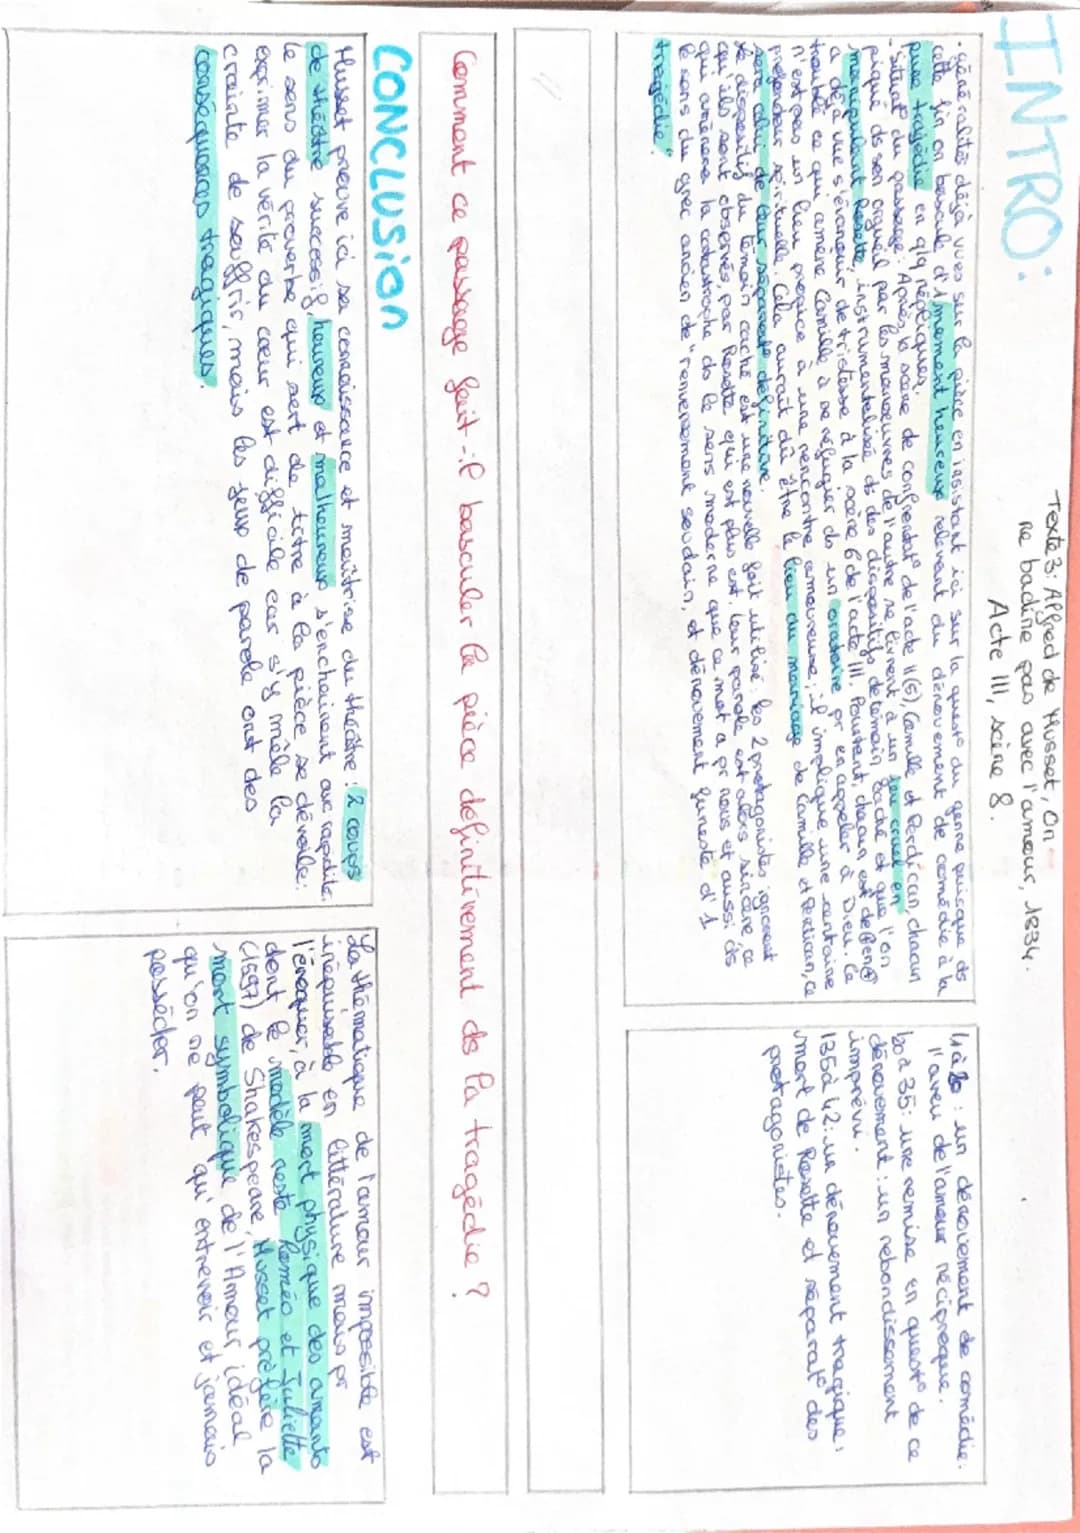 INTRO:
Texte 3: Alfred de Musset, On
ne badine pas avec l'amour, 1834.
Acte III, scène 8.
- généralités déjà vues sur la pièce en insistant ici sur la quest° du genre puisque ds
cette fin on bascule d'1 moment heureux relevant du dénouement de comédie à la
pure tragédie en qlq répliques.
- Situat° du passage: Après la scène de confrontat° de l'acte II(5), Camille et Perdican, chacun
piqué ds son orgueil par les manoeuvres de l'autre se livrent à un jeu cruel en
manipulant Rosette, instrumentalisée ds des dispositifs de témoin caché et que l'on
a déjà vue s'évanouir de tristesse à la scène 6 de l'acte III. Pourtant, chacun est
troublé ce qui amène Camille à se réfugier ds un oratoire pr en appeler à Dieu. Ce
n'est pas un lieu propice à une rencontre amoureuse; il implique une certaine
profondeur spirituelle. Cela aurait dû être le lieu du mariage de Camille et Perdican, ce
sera celui de leur séparat° définitive.
Le dispositif du témoin caché est une nouvelle fois utilisé: les 2 protagonistes ignorent
qu'ils sont observés, par Rosette qui est plus est. leur parole est alors sincère, ce
qui amènera la catastrophe ds le sens moderne que ce mot a pr nous et aussi ds
le sens du grec ancien de "renversement soudain, et dénouement funeste d'1
tragédie".
l1 à 20: un dénouement de comédie:
l'aveu de l'amour réciproque.
l20 à 35: une remise en quest° de ce
dénouement: un rebondissement
imprévu.
l35 à 42: un dénouement tragique:
mort de Rosette et séparat° des
protagonistes.
Comment ce passage fait-il basculer la pièce définitivement ds la tragédie?
CONCLUSION
Musset prouve ici sa connaissance et maîtrise du théâtre: 2 coups
de théâtre successifs, heureux et malheureux s'enchaînent avc rapidité.
le sens du proverbe qui sert de titre à la pièce se dévoile:
exprimer la vérité du coeur est difficile car s'y mêle la
crainte de souffrir, mais les jeux de parole ont des
conséquences tragiques.
La thématique de l'amour impossible est
inépuisable en littérature mais pr
l'évoquer, à la mort physique des amants
dont le modèle reste Roméo et Juliette
(1597) de Shakespeare, Musset préfère la
mort symbolique de l'Amour idéal
qu'on ne peut qu'entrevoir et jamais
posséder.